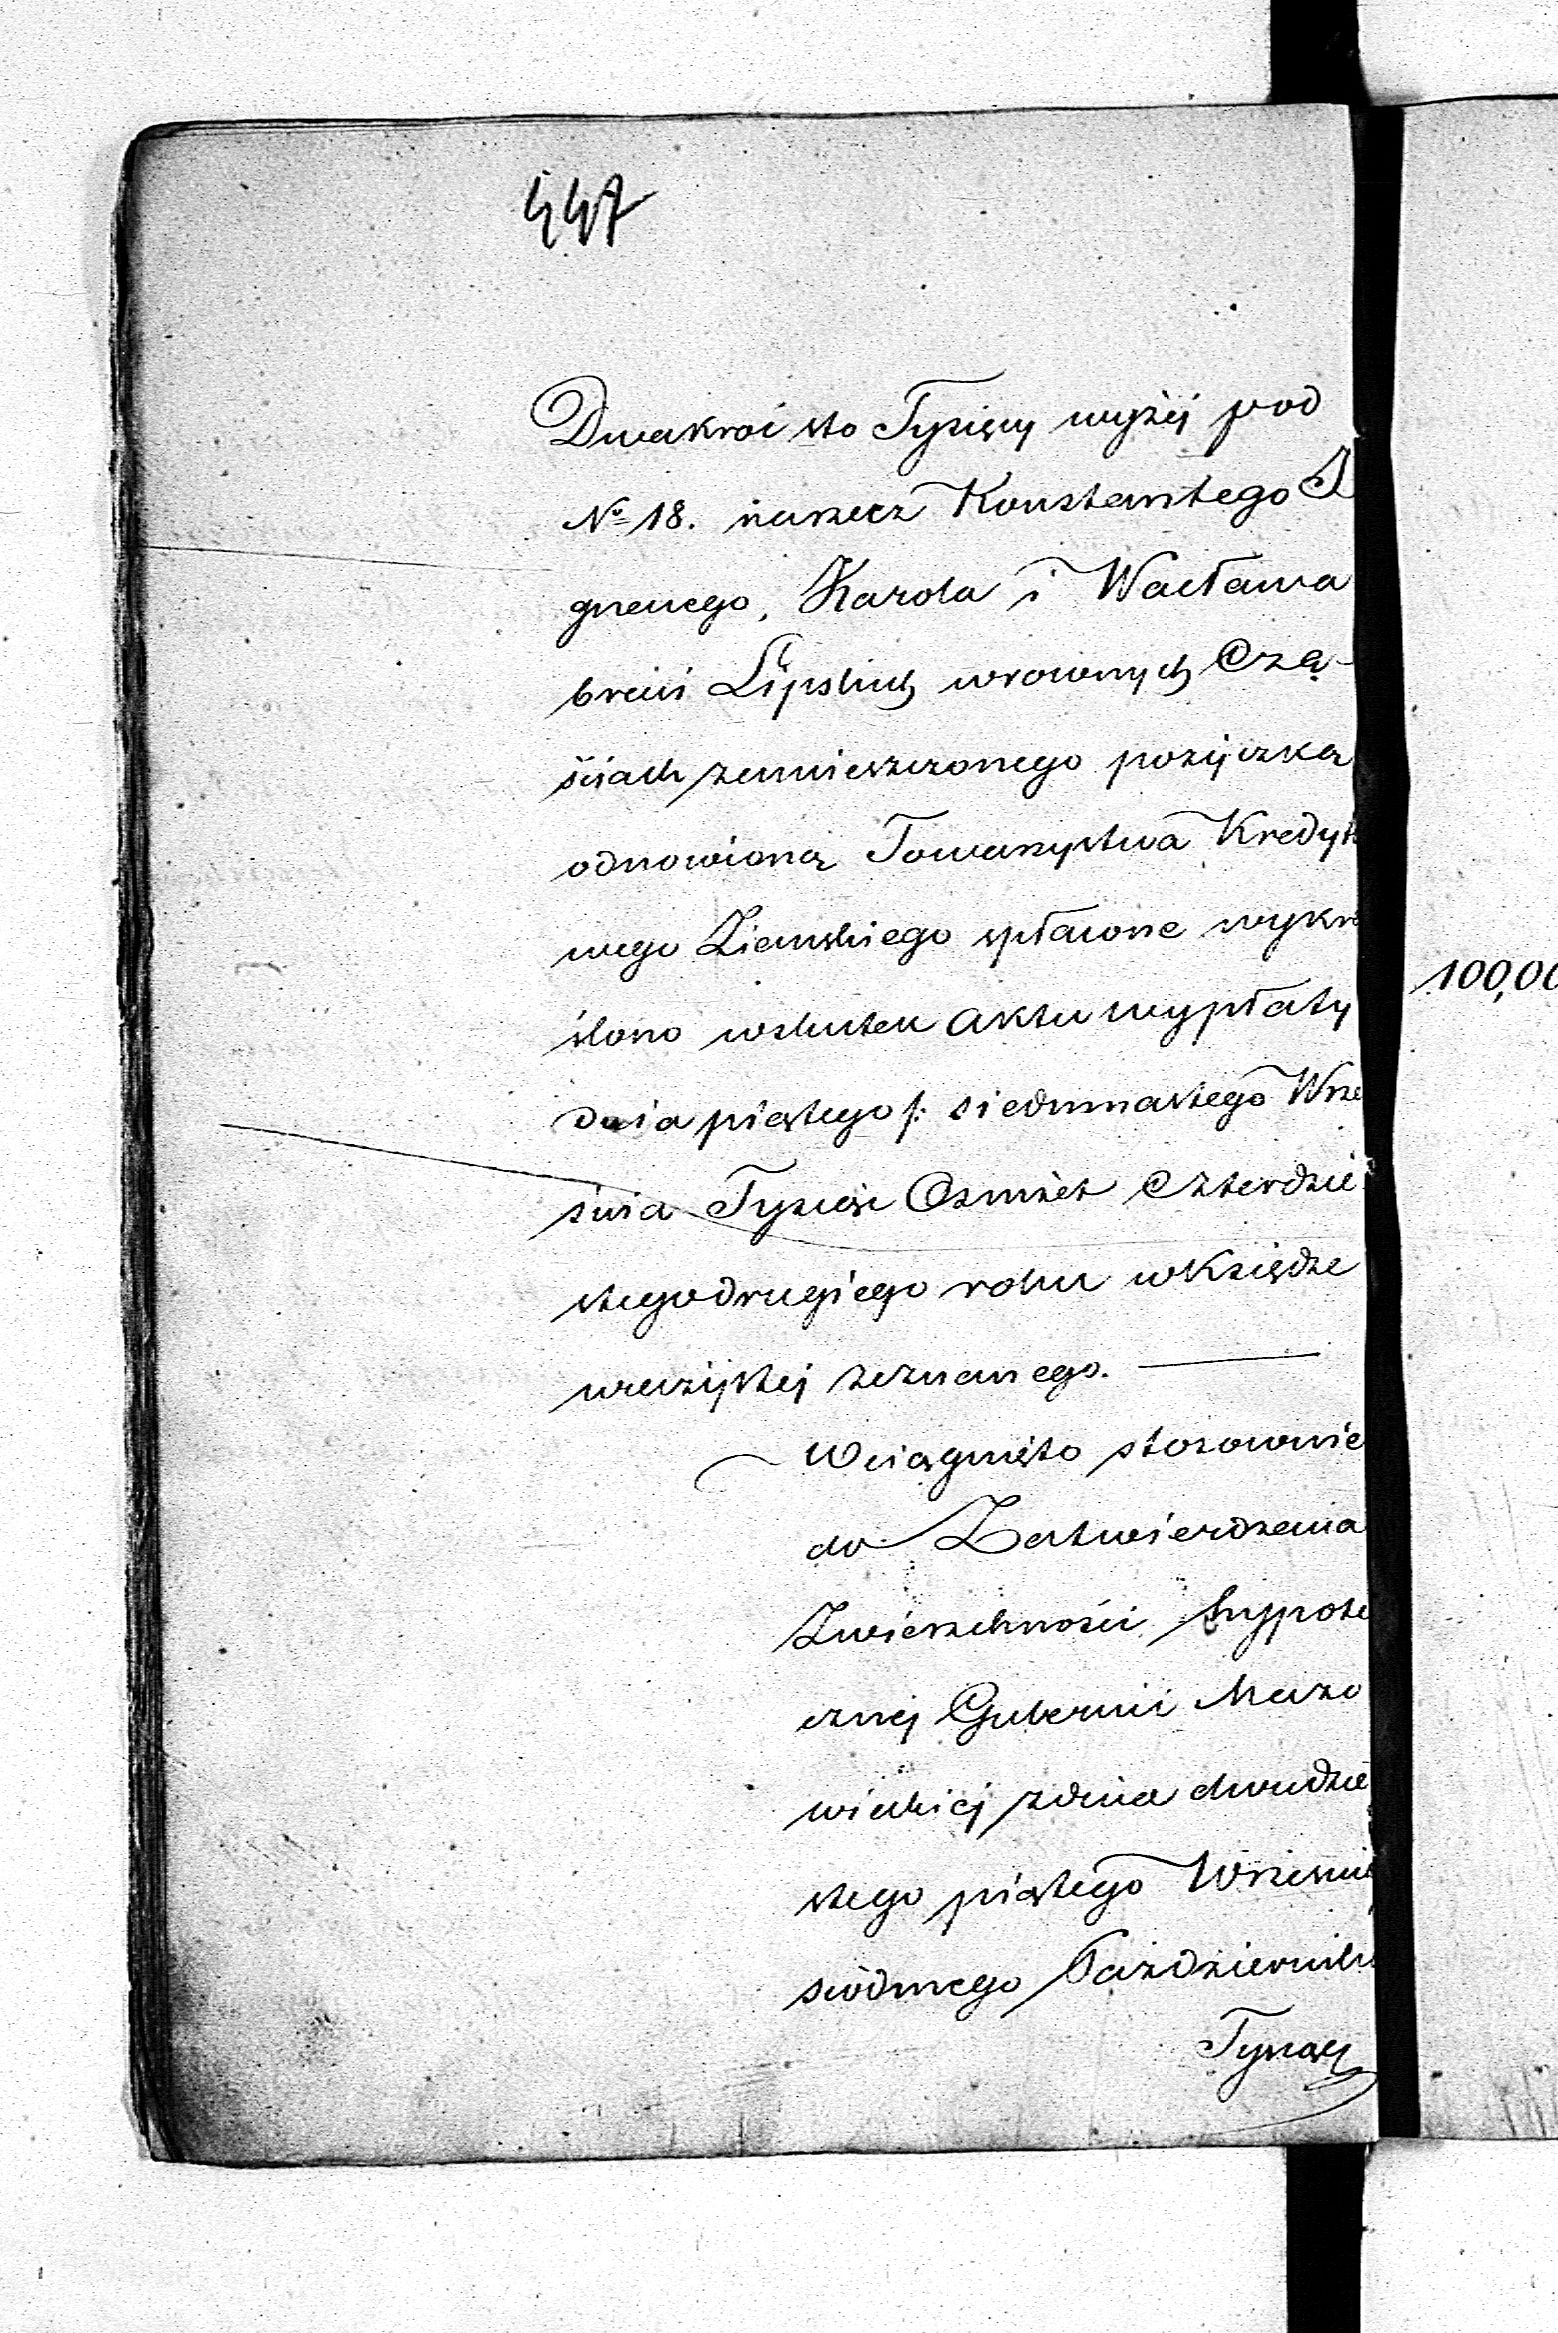 447
Dwakroć sto Tysięcy wyżej pod
№ 18. narzecz Konstantego I
gnacego, Karola i Wacława
braci Lipskich wrownych Czę-
ściach zamieszczonego pożyczką
odnowioną Towarzystwa Kredyto
wego Ziemskiego spłacone wykre
ślono wskutek aktu wypłaty
100,00
dnia piątego /: siedmnastego Wrze
śnia Tysiąc Osmset Czterdzie
stego drugiego roku wKsiędze
wieczystej zeznanego.
Wciągnięto stosownie
do Zatwierdzenia
Zwierzchności hypote
cznej Gubernii Mazo
wieckiej zdnia dwudzie
stego piątego Wrześni
siódmego Października
Tysiąc